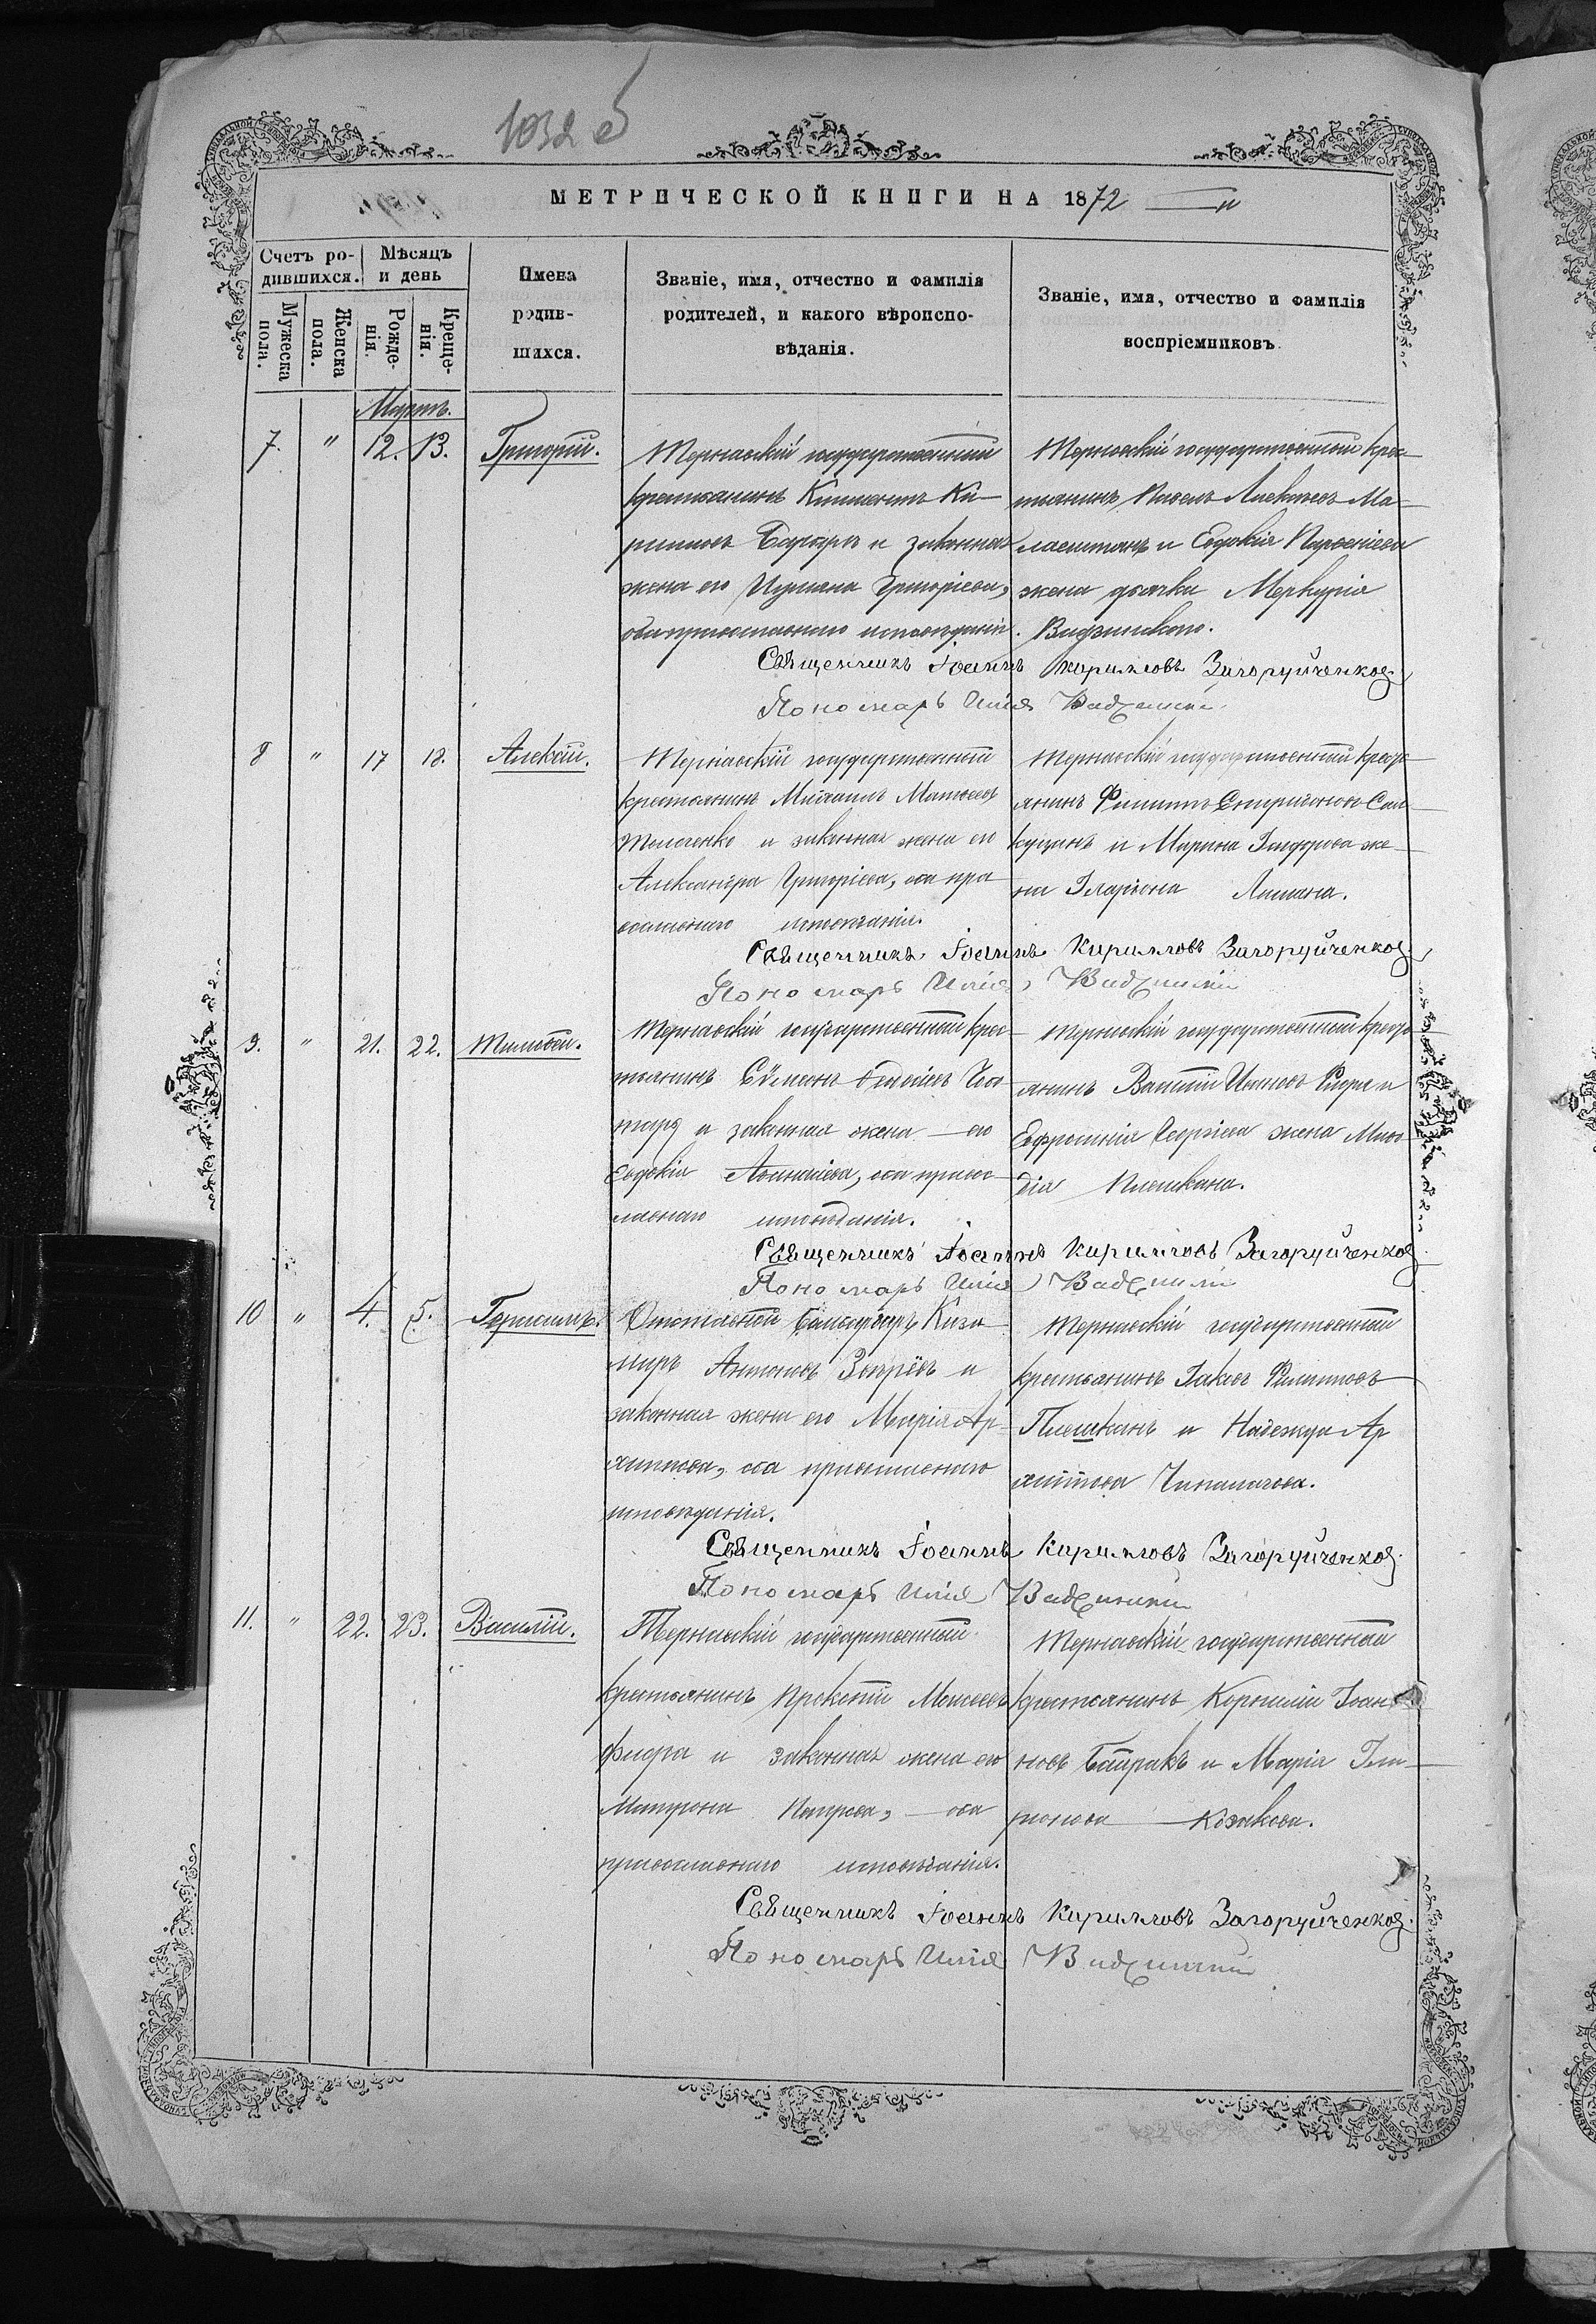 1032 об
МЕТРИЧЕСКОЙ КНИГИ НА 1872
Счетъ ро-
дившихся.
Мужеска пола.
Женска пола.
Мѣсяцъ
и день
Рожде-
нія.
Креще-
нія.
Имена
родив-
шихся.
Званіе, имя, отчество и фамилія
родителей, и какого вѣроиспо-
вѣданія.
Званіе, имя, отчество и фамилія
воспріемниковъ.
Мартъ.
7. " 12. 13. Григорій.
Терновскій государственный
крестьянинъ Ки-
рилловъ и законная
жена его Григоріева,
оба православнаго исповѣданія.
Терновскій государственный крес-
тьянинъ Павелъ Алексѣевъ Ма-
и Евдокія Парѳеніева
жена дьячка Меркурія
Священникъ Іоаннъ Кирилловъ Загоруйченковъ
Пономарь Илія
8 " 17 18. Алексій.
Терновскій государственный
крестьянинъ Михаилъ Матвеевъ
и законная жена его
Александра Григоріева, оба пра
вославнаго исповѣданія.
Терновскій государственный крестья
янинъ Филиппъ Спиридоновъ
и Марина Исидорова же-
на Иларіона Лимана.
Священникъ Іоаннъ Кирилловъ Загоруйченковъ
Пономарь Илія
9. " 21. 22. Тимоѳей.
Терновскій государственный крес-
тьянинъ Сѵмеонъ
и законная жена его
Евдокія Аѳанасіева, оба правос
лавнаго исповѣданія.
Терновскій государственный крестья
янинъ Василій Ивановъ Фидря и
Евфросинія Георгіева жена
Плешкана.
Священникъ Іоаннъ Кирилловъ Загоруйченковъ
Пономарь Илія
10 " 4. 5. Герасимъ.
Отставной Кази-
миръ Антоновъ и
законная жена его Марія Ар-
хиппова, оба православнаго
исповѣданія.
Терновскій государственный
крестьянинъ Іаковъ Филипповъ
Плешканъ и Надежда Ар
хиппова
Священникъ Іоаннъ Кирилловъ Загоруйченковъ
Пономарь Илія
11. " 22. 23. Василій.
Терновскій государственный
крестьянинъ Моисеевъ
Фидря и законная жена его
Матрона Петрова, оба
православнаго исповѣданія.
Терновскій государственный
крестьянинъ Корнилій Іоан-
новъ Байракъ и Марія Ила-
ріонова Козакова.
Священникъ Іоаннъ Кирилловъ Загоруйченковъ
Пономарь Илія